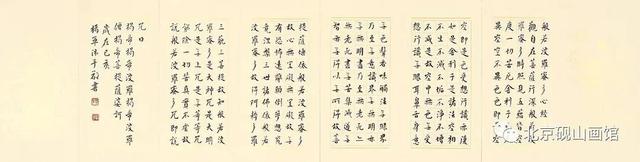 般若波羅蜜多心經
觀自在菩薩行深般若
波羅蜜多時照見五蘊皆空
度一切苦厄舍利子色不
異空空不異色色即是
空即是色受想行識亦復
如是舍利子是諸法空相
不生不滅不垢不淨不增
不減是故空中無色無受
想行識無眼耳鼻舌身意
無色聲香味觸法無眼界
乃至無意識界無無明亦
無無明盡乃至無老死亦
無老死盡無苦集滅道無
智亦無得以無所得故菩
提薩埵依般若波羅蜜多
故心無罣礙無罣礙故無
有恐怖遠離顛倒夢想究
竟涅槃三世諸佛依般若
波羅蜜多故得阿耨多羅
三藐三菩提故知般若波
羅蜜多是大神咒是大明
咒是無上咒是無等等咒
能除一切苦真實不虛故
說般若波羅蜜多咒即說
咒曰
揭帝揭帝波羅揭帝波羅
僧揭帝菩提薩婆訶
歲在己亥
北京砚山画馆